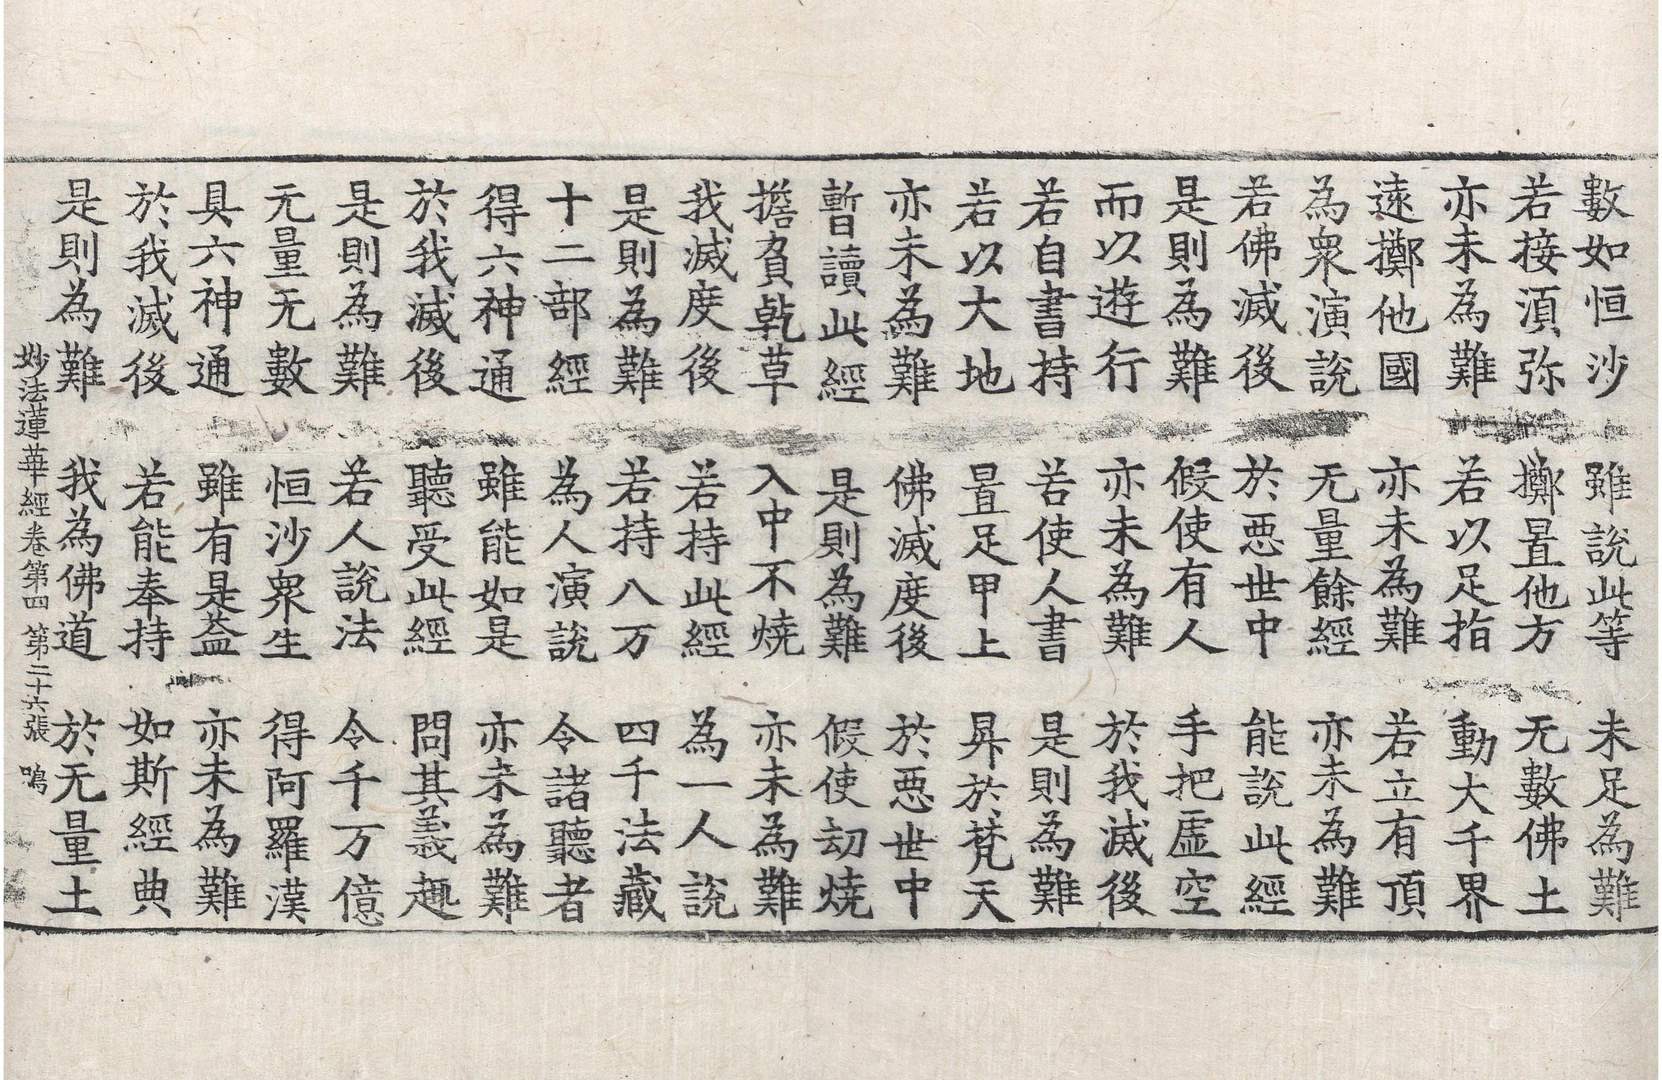 數如恒沙 雖說此等 未足為難
若接湏弥 擲置他方 无數佛土
亦未為難 若以足指 動大千界
遠擲他國 亦未為難 若立有頂
為衆演說 无量餘經 亦未為難
若佛滅後 於悪世中 能說此經
是則為難 假使有人 手把虛空
而以遊行 亦未為難 於我滅後
若自書持 若使人書 是則為難
若以大地 置足甲上 昇於梵天
亦未為難 佛滅度後 於悪世中
暫讀此經 是則為難 假使劫燒
擔負乾草 入中不燒 亦未為難
我滅度後 若持此經 為一人說
是則為難 若持八万 四千法藏
十二部經 為人演說 令諸聽者
得六神通 雖能如是 亦未為難
於我滅後 聽受此經 問其義趣
是則為難 若人說法 令千万億
无量无數 恒沙衆生 得阿羅漢
具六神通 雖有是益 亦未為難
於我滅後 若能奉持 如斯經典
是則為難 我為佛道 於无量土
妙法蓮華經卷第四 第二十六張 鳴